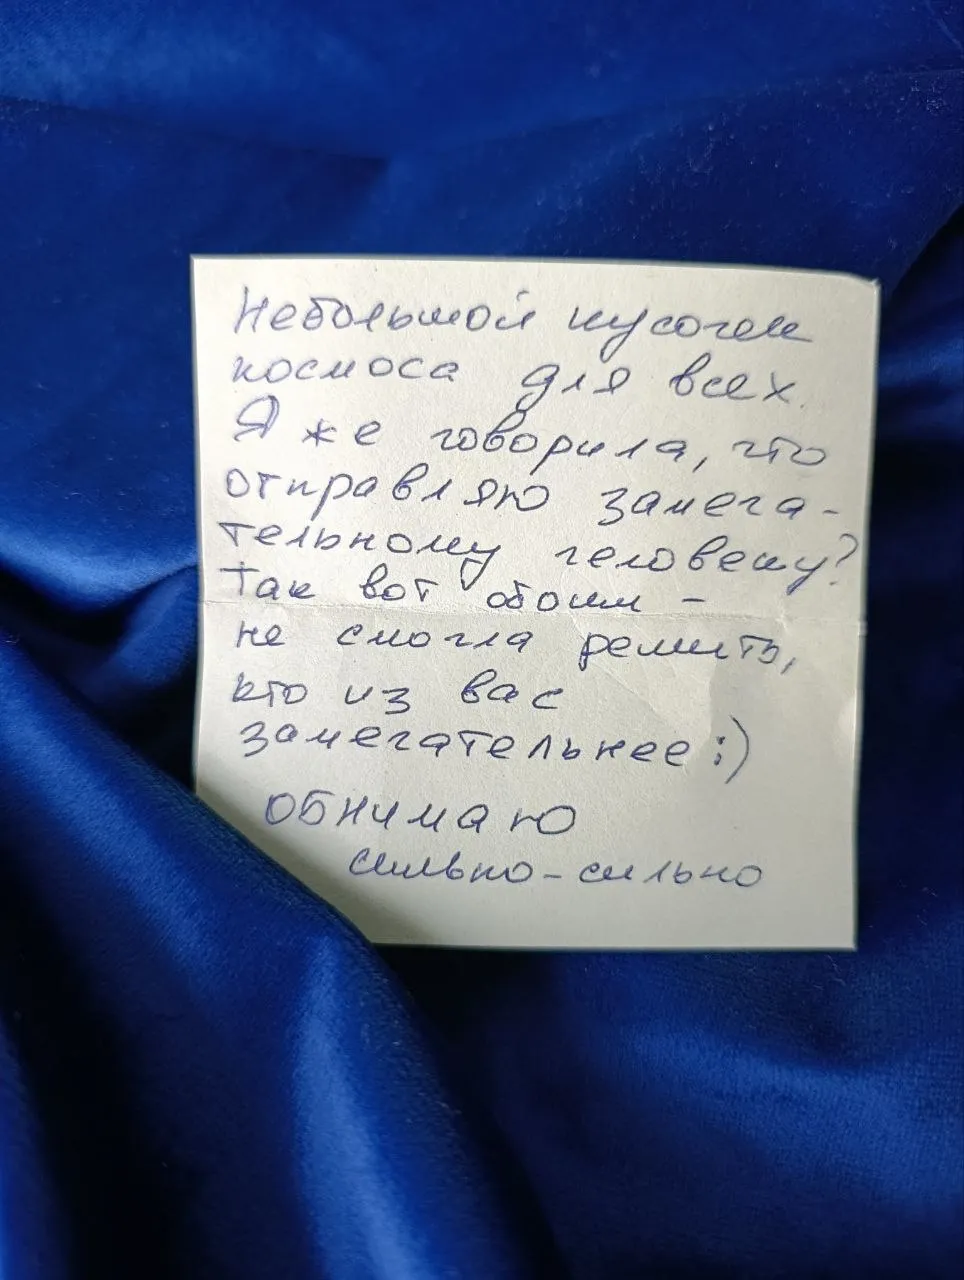 Небольшой кусочек
космоса для всех.
Я же говорила, что
отправляю замеча-
тельному человеку?
Так вот обоим -
не смогла решить,
кто из вас
замечательнее :)
обнимаю
сильно-сильно